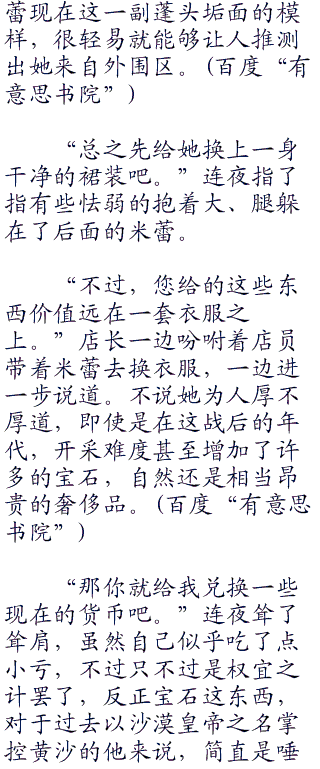 蕾现在这一副蓬头垢面的模
样，很轻易就能够让人推测
出她来自外围区。(百度“有
意思书院”)
“总之先给她换上一身
干净的裙装吧。”连夜指了
指有些怯弱的抱着大、腿躲
在了后面的米蕾。
“不过，您给的这些东
西价值远在一套衣服之
上。”店长一边吩咐着店员
带着米蕾去换衣服，一边进
一步说道。不说她为人厚不
厚道，即使是在这战后的年
代，开采难度甚至增加了许
多的宝石，自然还是相当昂
贵的奢侈品。(百度“有意思
书院”)
“那你就给我兑换一些
现在的货币吧。”连夜耸了
耸肩，虽然自己似乎吃了点
小亏，不过只不过是权宜之
计罢了，反正宝石这东西，
对于过去以沙漠皇帝之名掌
控黄沙的他来说，简直是唾